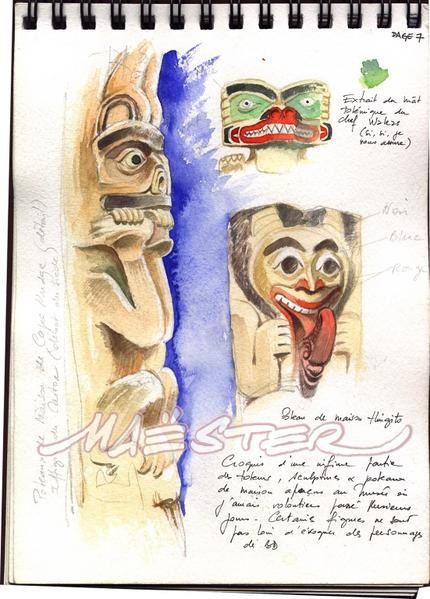 PAGE 7
Extrait du mât
totémique du
chef Wakas
(si, si, je
vous assure)
Noir
Bleu
Rouge
Poteau de maison tlingits
MAËSTER
Croquis d'une infime partie
des totems, sculptures & poteaux
de maison aperçus au Musée où
j'aurais volontiers passé plusieurs
jours. Certaines figures ne sont
pas loin d'évoquer des personnages
de BD